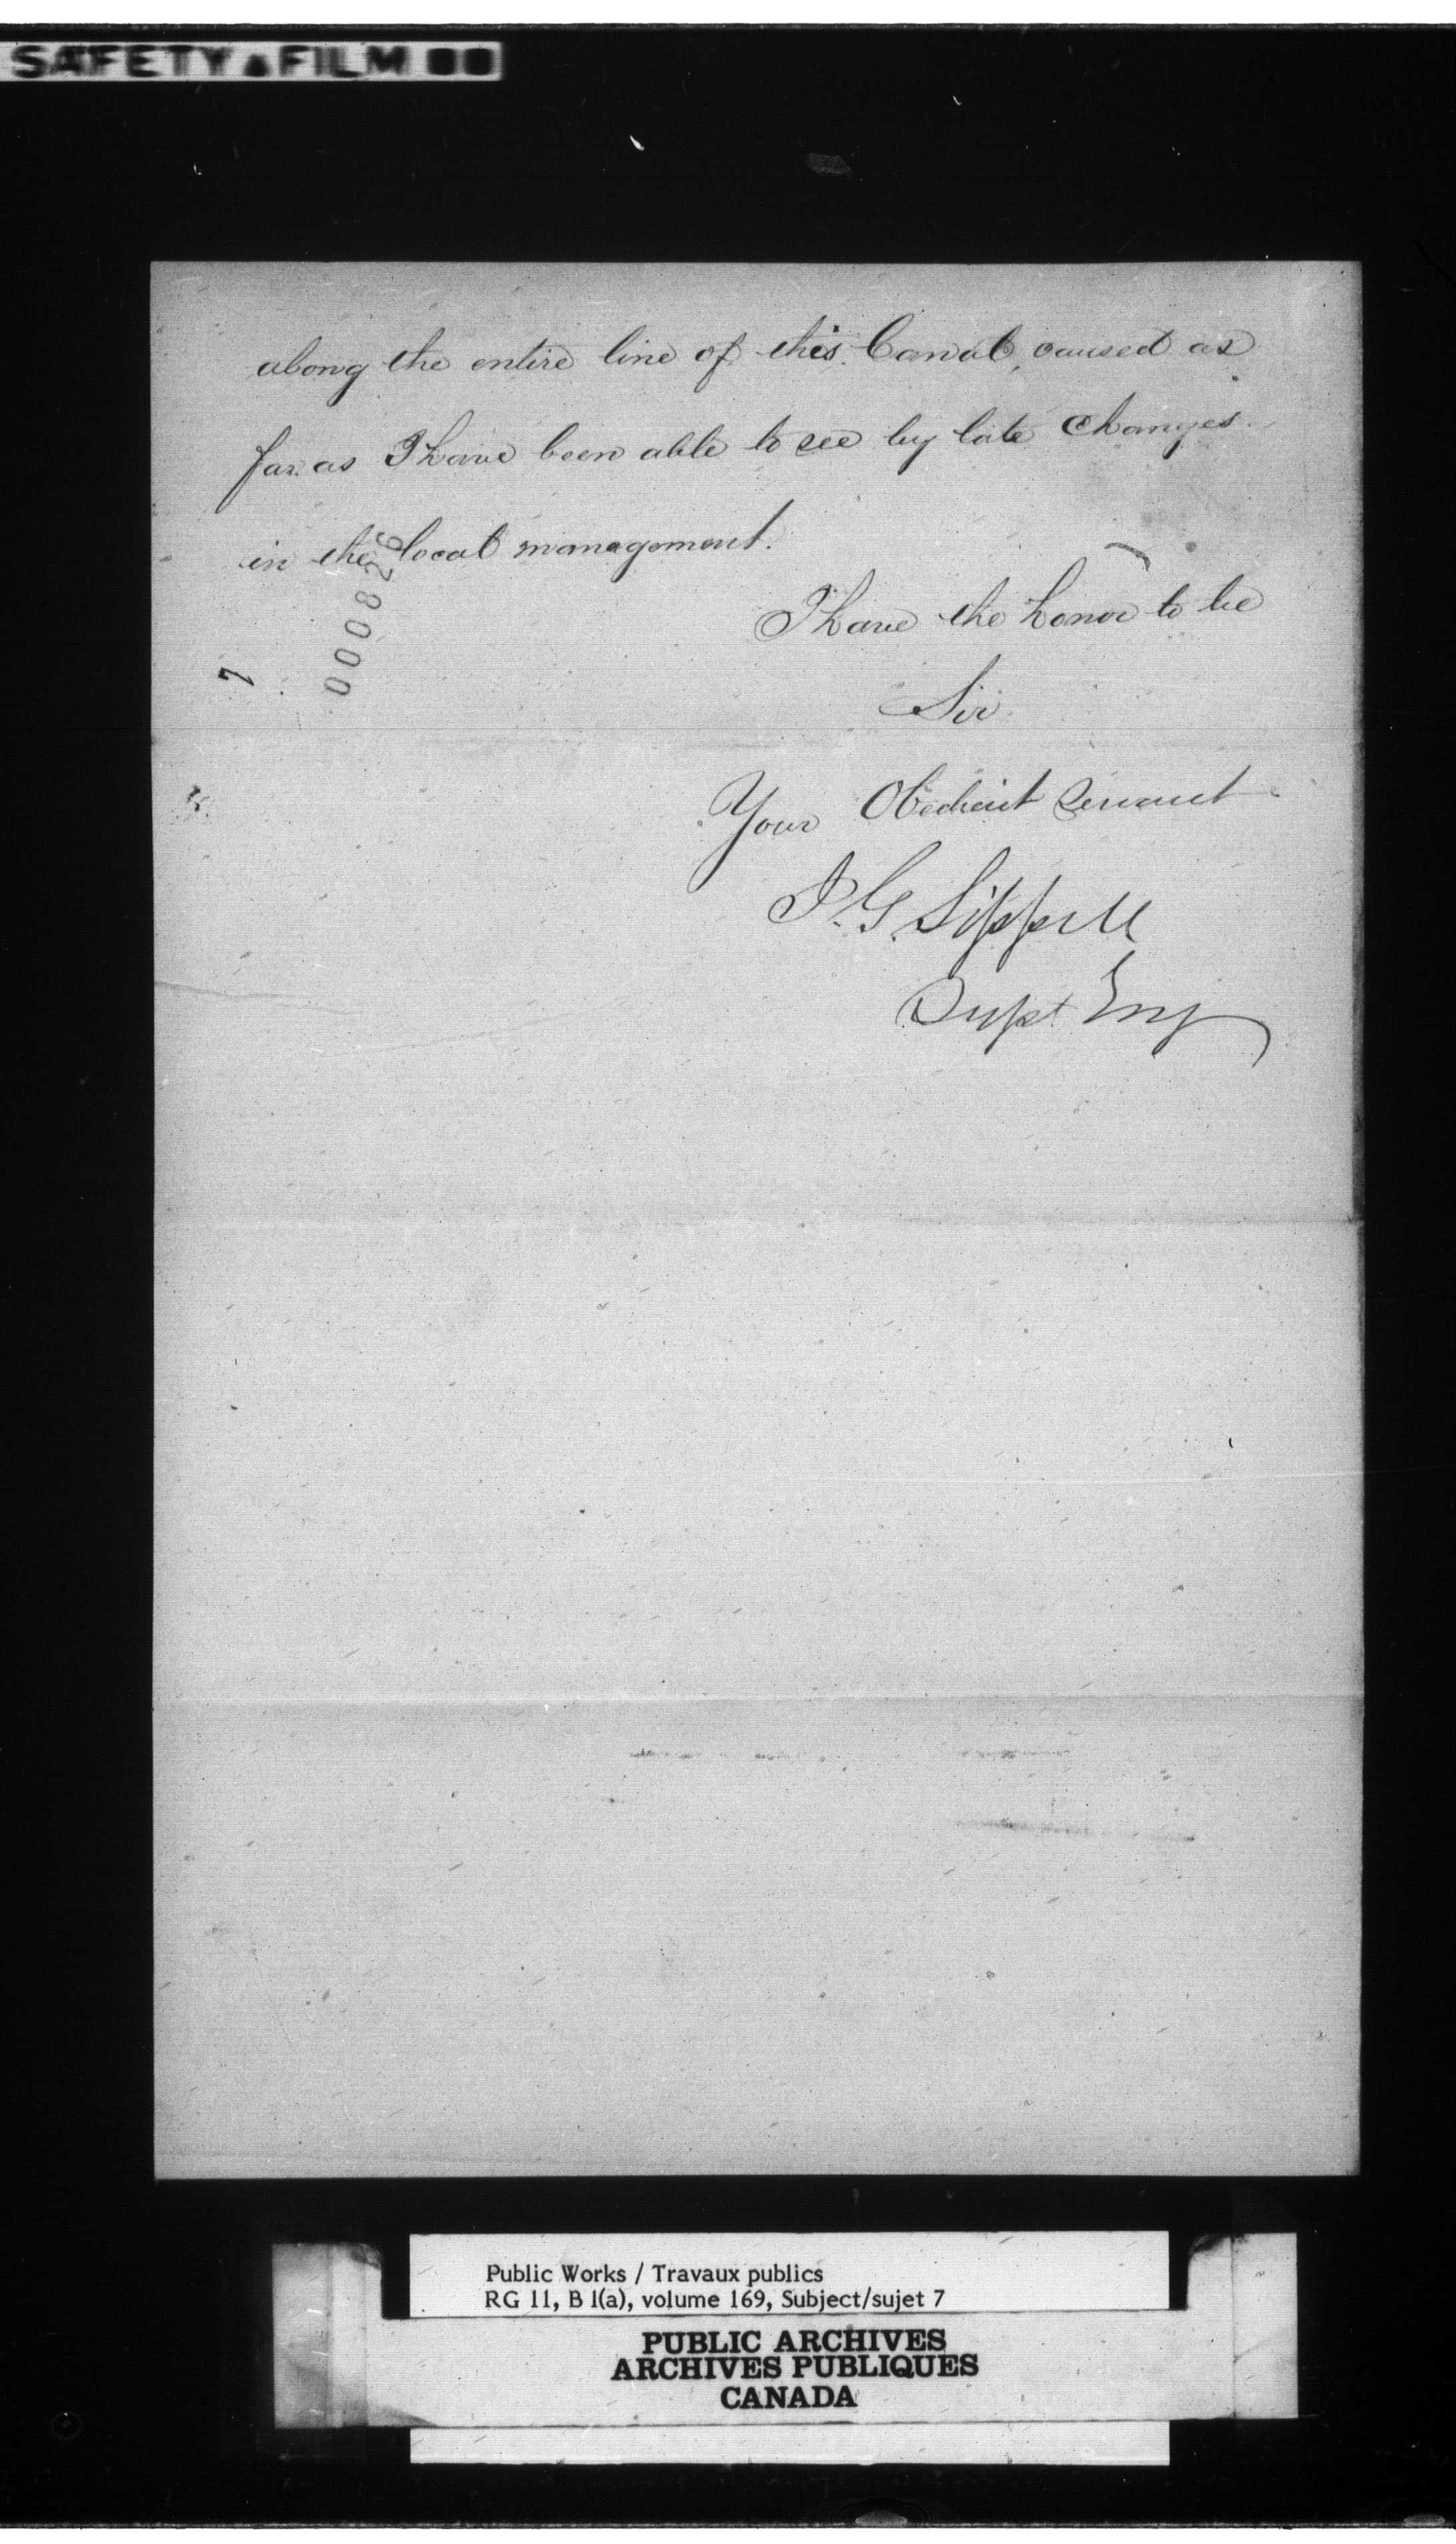 SAFETY FILM
along the entire line of this Canal, caused as
far as I have been able to see by late Changes
in the local management.
I have the honor to be
Sir
Your Obedient Servant
J. G. Sippell
Supt Eng
000826
7
Public Works / Travaux publics
RG 11, B 1(a), volume 169, Subject/sujet 7
PUBLIC ARCHIVES
ARCHIVES PUBLIQUES
CANADA